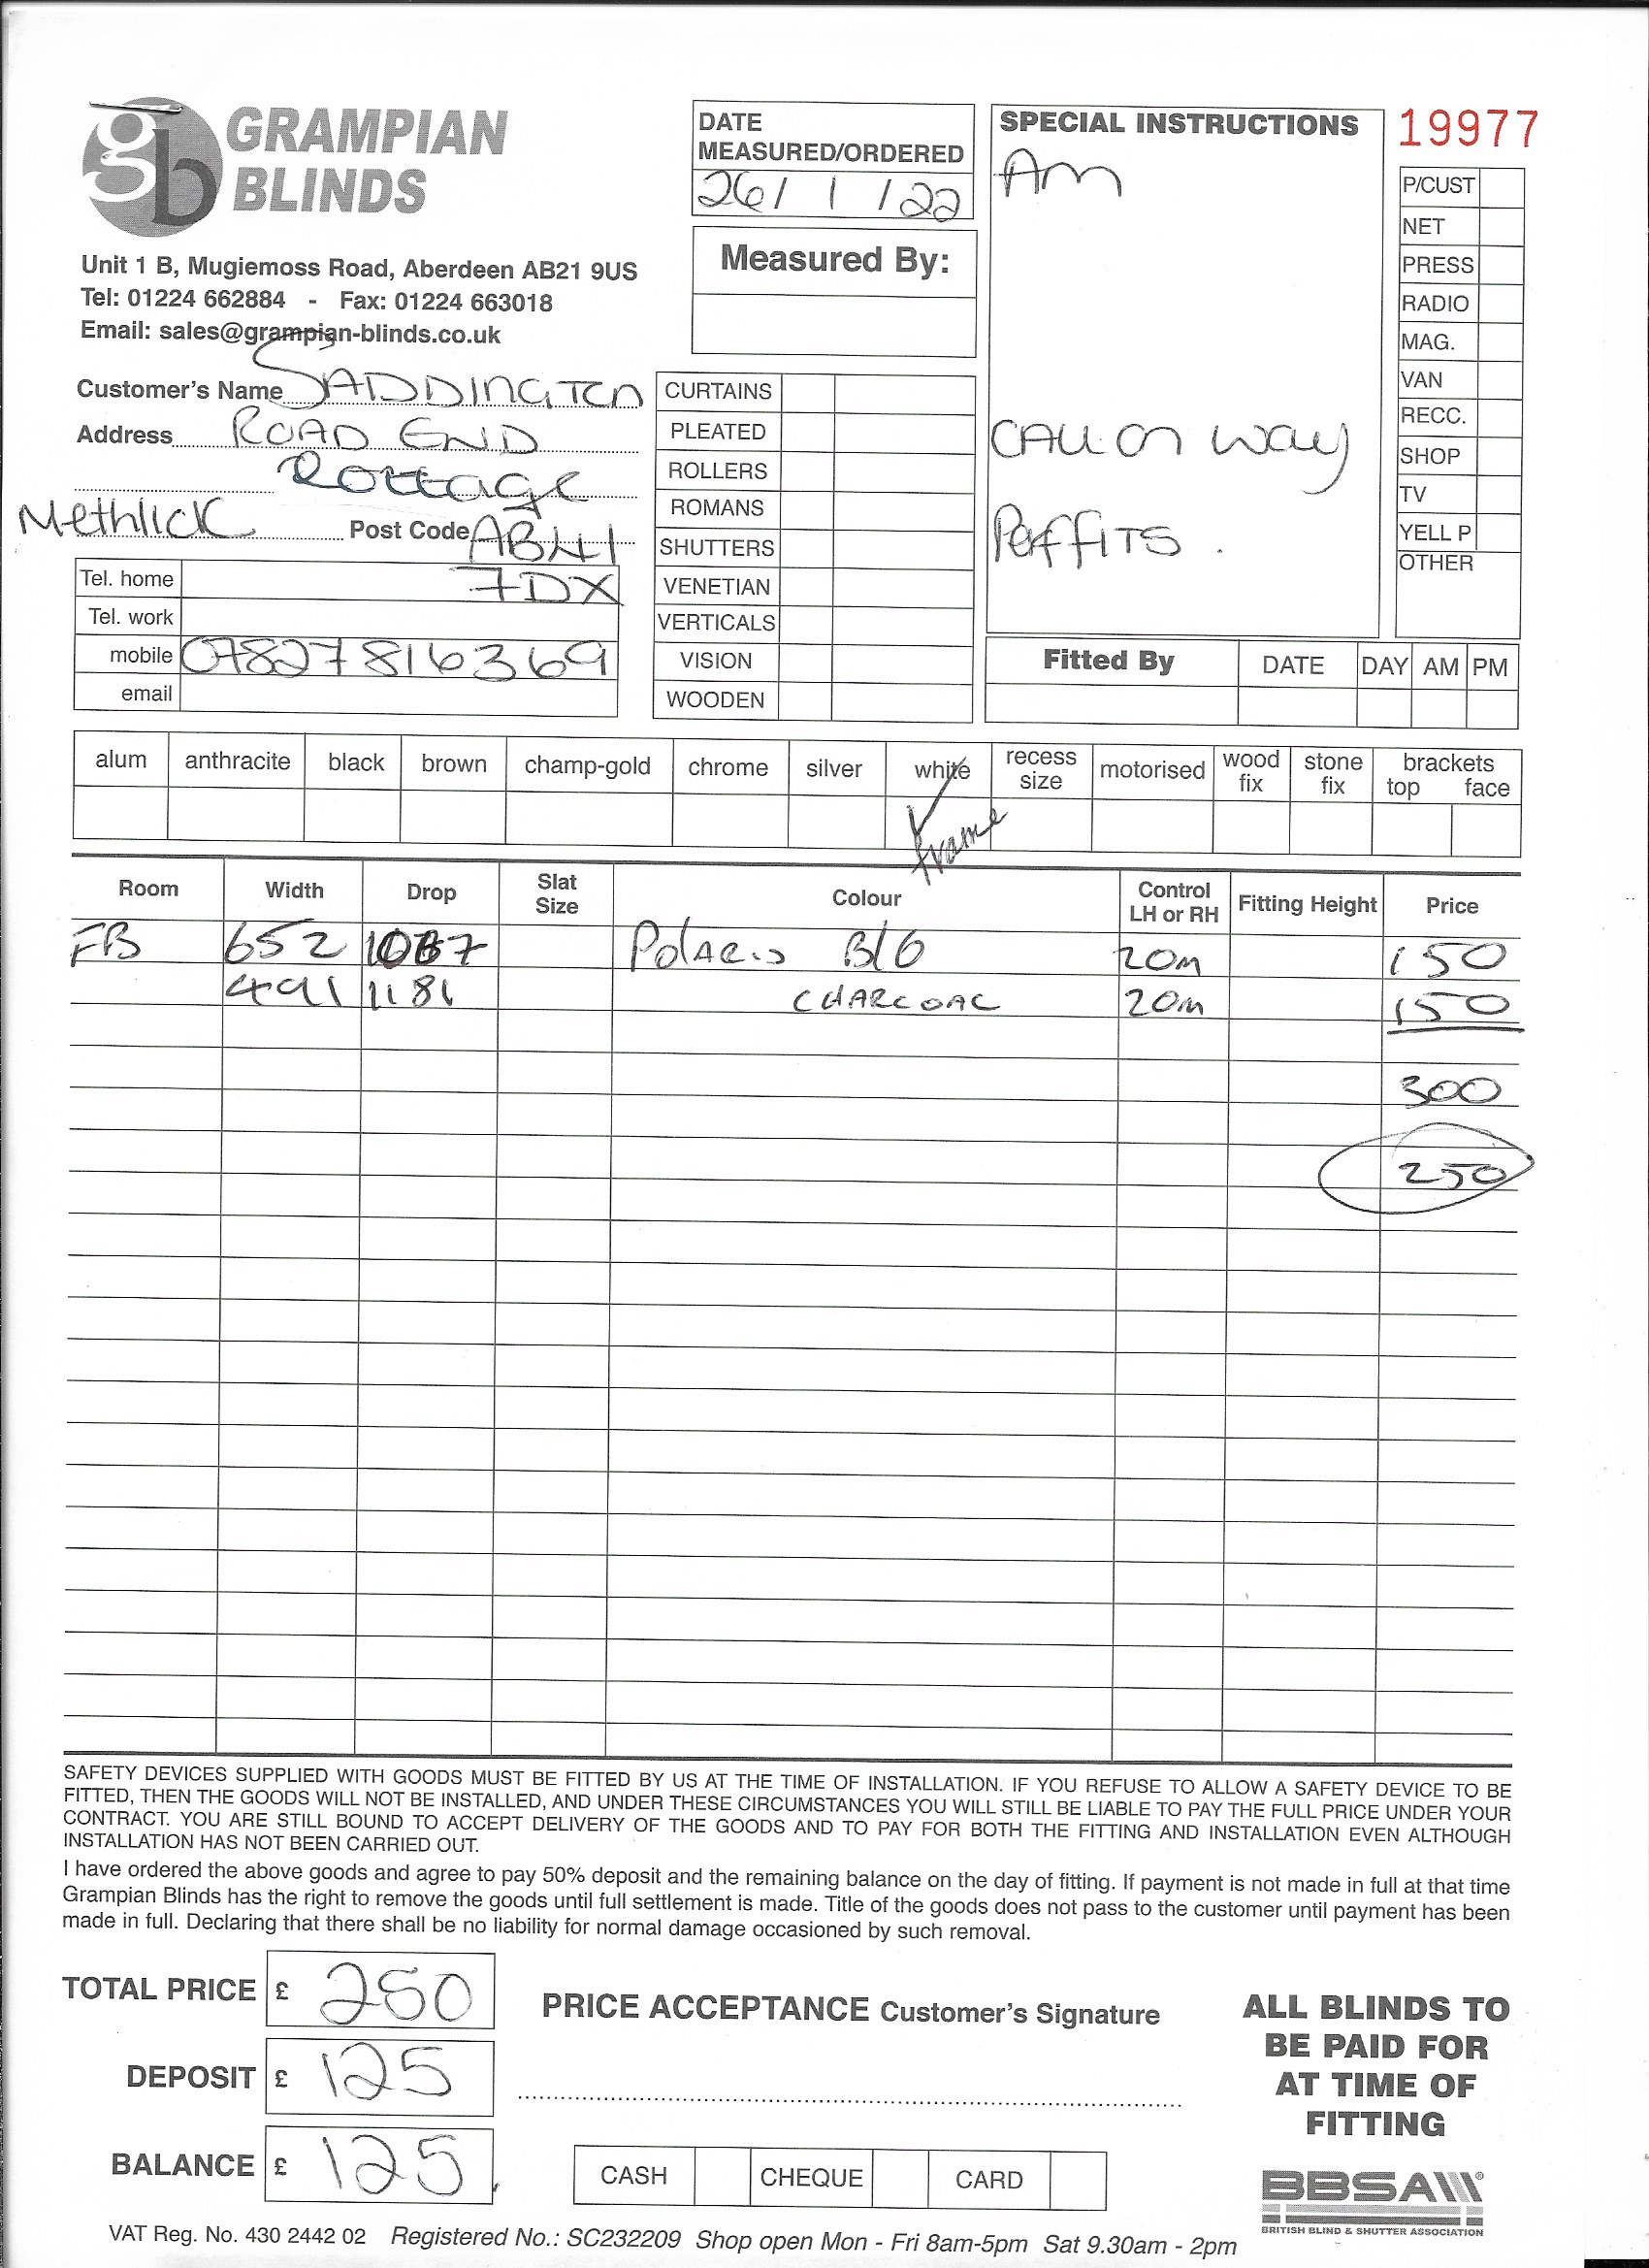 gb GRAMPIAN BLINDS
Unit 1 B, Mugiemoss Road, Aberdeen AB21 9US
Tel: 01224 662884 - Fax: 01224 663018
Email: sales@grampian-blinds.co.uk
DATE MEASURED/ORDERED
26/1/22
Measured By:
SPECIAL INSTRUCTIONS
Am
CALL on way
Peffits.
19977
P/CUST
NET
PRESS
RADIO
MAG.
VAN
RECC.
SHOP
TV
YELL P
OTHER
Customer's Name SADDINGTON
Address ROAD END
Methlick Post Code AB41
7DX
Tel. home
Tel. work
mobile 07827816369
email
CURTAINS
PLEATED
ROLLERS
ROMANS
SHUTTERS
VENETIAN
VERTICALS
VISION
WOODEN
Fitted By DATE DAY AM PM
alum anthracite black brown champ-gold chrome silver white recess size motorised wood fix stone fix brackets top face
frame
Room Width Drop Slat Size Colour Control LH or RH Fitting Height Price
FB 652 Polaris B/O 20m 150
491 1181 CHARCOAL 20m 150
300
250
SAFETY DEVICES SUPPLIED WITH GOODS MUST BE FITTED BY US AT THE TIME OF INSTALLATION. IF YOU REFUSE TO ALLOW A SAFETY DEVICE TO BE
FITTED, THEN THE GOODS WILL NOT BE INSTALLED, AND UNDER THESE CIRCUMSTANCES YOU WILL STILL BE LIABLE TO PAY THE FULL PRICE UNDER YOUR
CONTRACT. YOU ARE STILL BOUND TO ACCEPT DELIVERY OF THE GOODS AND TO PAY FOR BOTH THE FITTING AND INSTALLATION EVEN ALTHOUGH
INSTALLATION HAS NOT BEEN CARRIED OUT.
I have ordered the above goods and agree to pay 50% deposit and the remaining balance on the day of fitting. If payment is not made in full at that time
Grampian Blinds has the right to remove the goods until full settlement is made. Title of the goods does not pass to the customer until payment has been
made in full. Declaring that there shall be no liability for normal damage occasioned by such removal.
TOTAL PRICE £ 250
DEPOSIT £ 125
BALANCE £ 125
PRICE ACCEPTANCE Customer's Signature
CASH CHEQUE CARD
ALL BLINDS TO
BE PAID FOR
AT TIME OF
FITTING
BBSA
BRITISH BLIND & SHUTTER ASSOCIATION
VAT Reg. No. 430 2442 02 Registered No.: SC232209 Shop open Mon - Fri 8am-5pm Sat 9.30am - 2pm